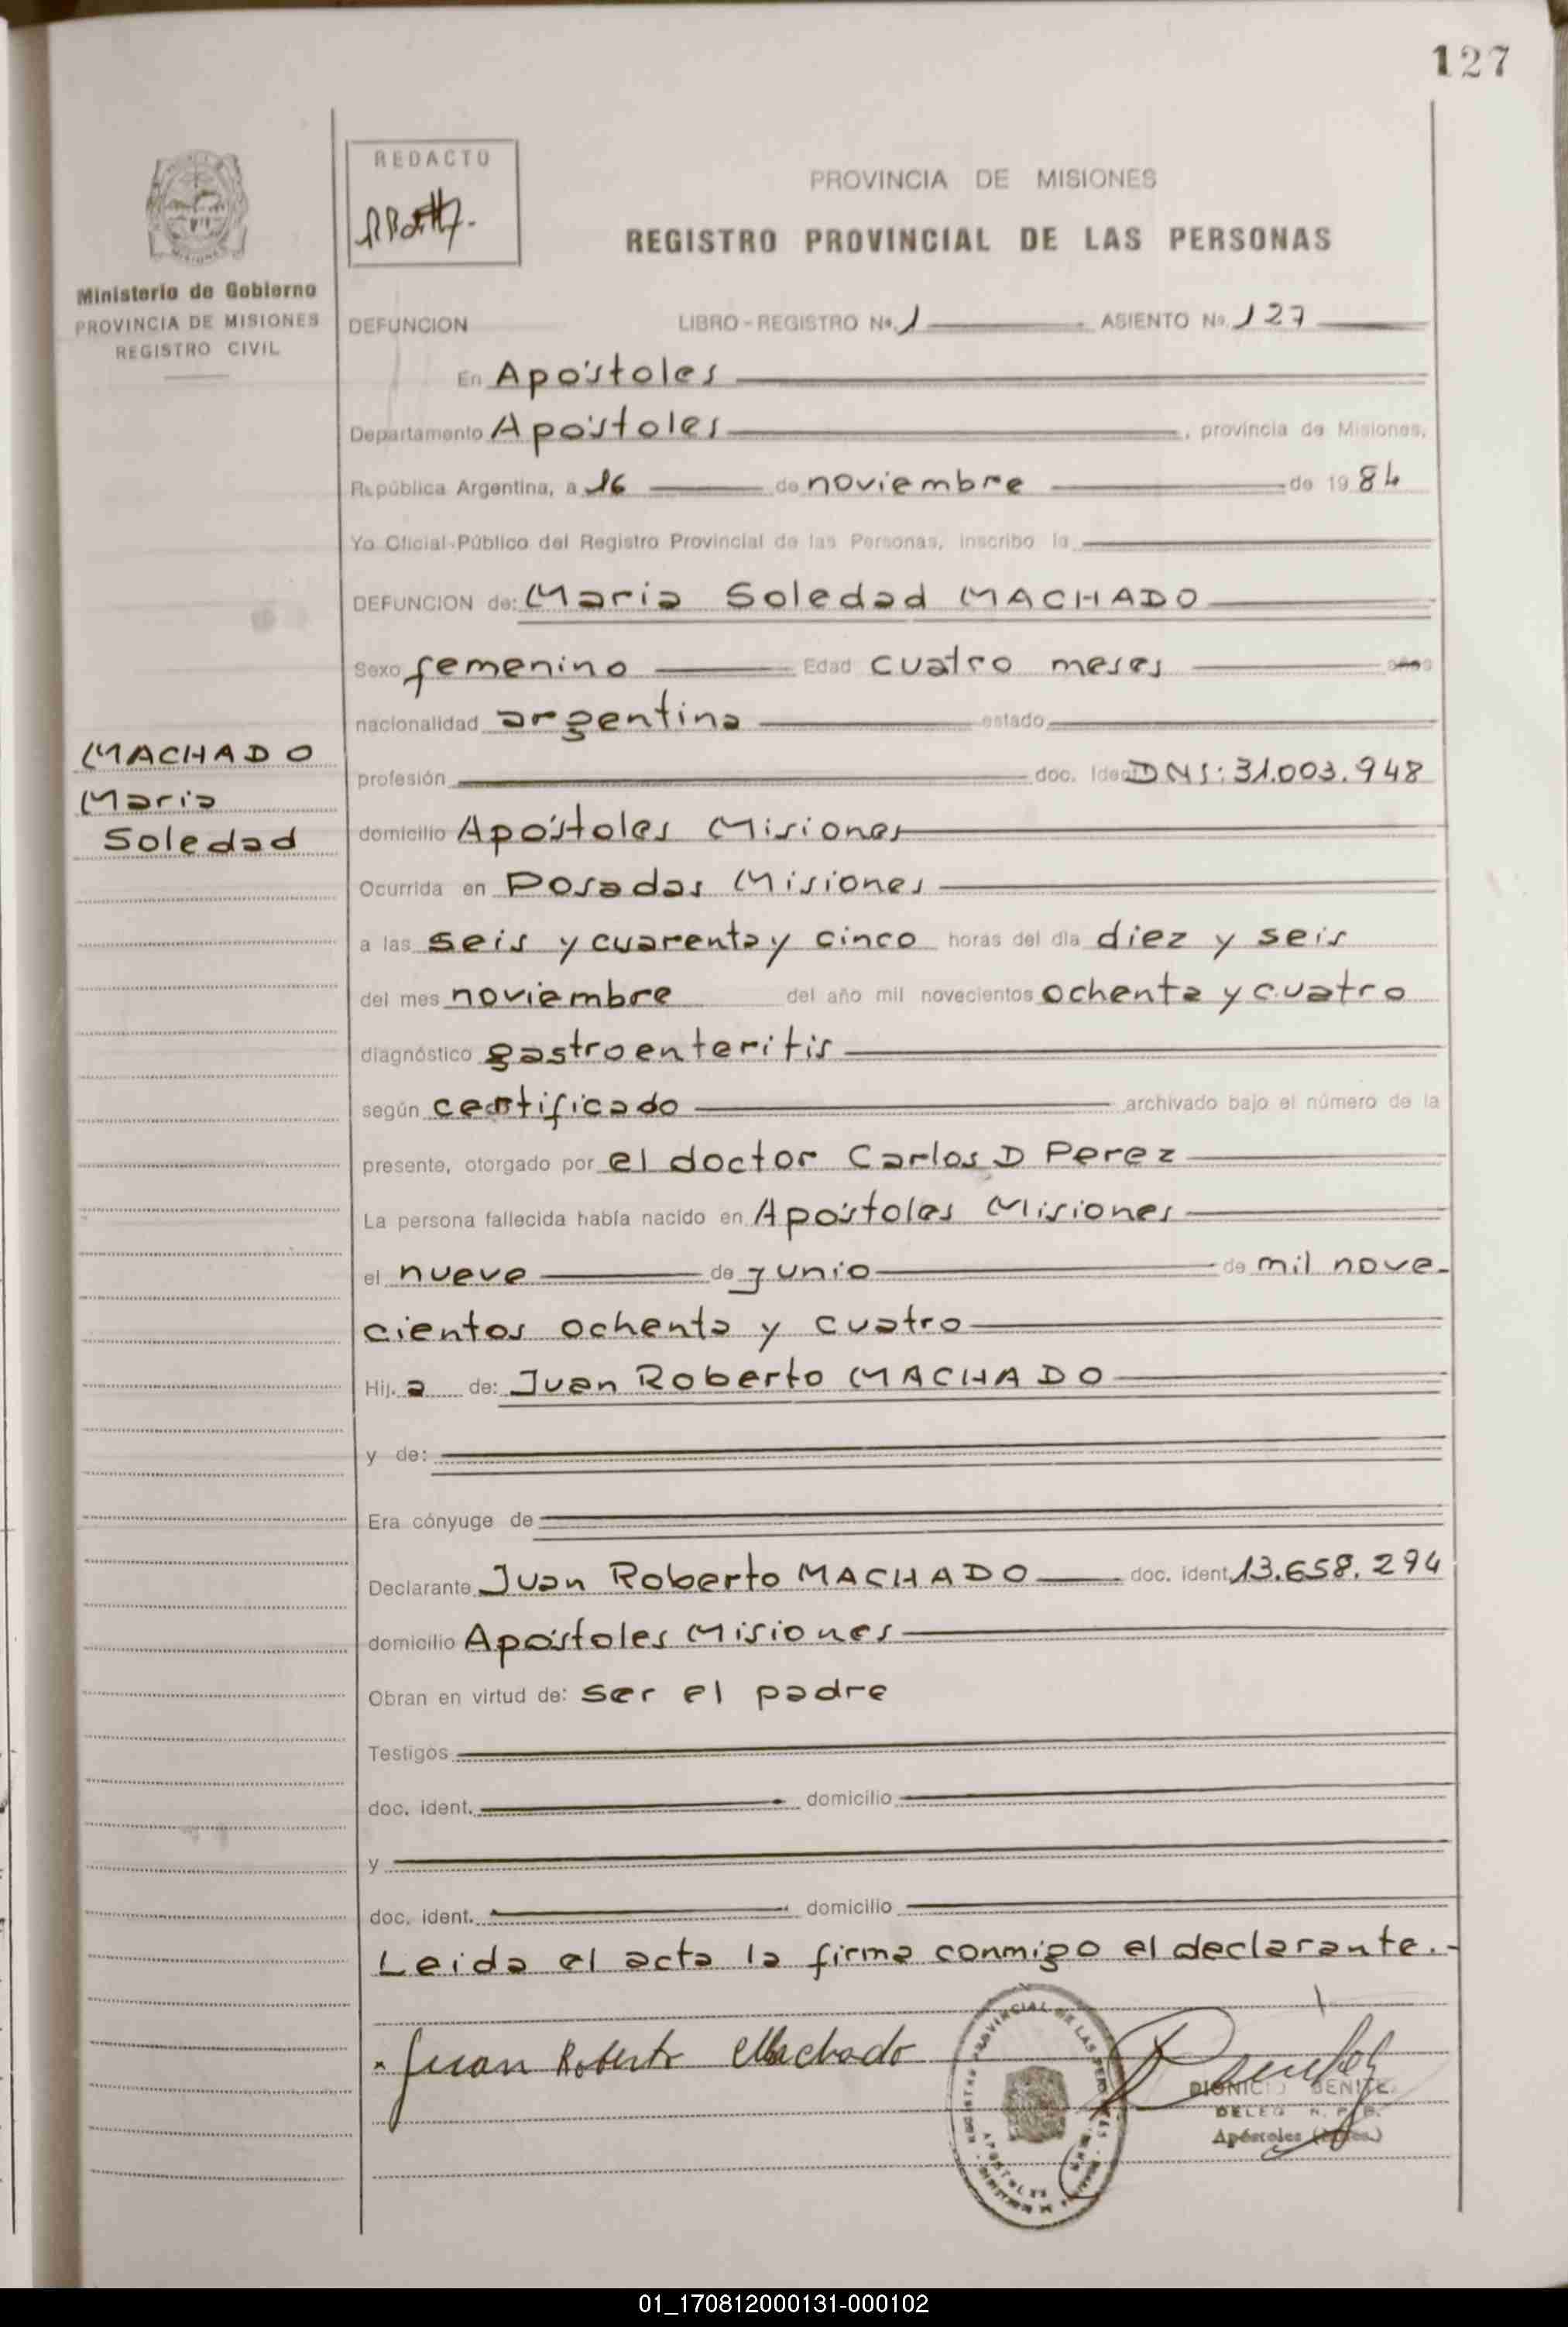 127
REDACTO
PROVINCIA DE MISIONES
REGISTRO PROVINCIAL DE LAS PERSONAS
MISIONES
Ministerio de Gobierno
PROVINCIA DE MISIONES
REGISTRO CIVIL
DEFUNCION LIBRO-REGISTRO Nº 1 ASIENTO Nº 127
En Apóstoles
Departamento Apóstoles, provincia de Misiones,
República Argentina, a 16 de noviembre de 1984
Yo Oficial Público del Registro Provincial de las Personas, inscribo la
DEFUNCION de: Maria Soledad MACHADO
Sexo femenino Edad cuatro meses años
nacionalidad argentina estado
MACHADO
Maria
Soledad
profesión doc. Ident DNI: 31.003.948
domicilio Apóstoles Misiones
Ocurrida en Posadas Misiones
a las seis y cuarenta y cinco horas del día diez y seis
del mes noviembre del año mil novecientos ochenta y cuatro
diagnóstico gastroenteritis
según certificado archivado bajo el número de la
presente, otorgado por el doctor Carlos D Perez
La persona fallecida había nacido en Apóstoles Misiones
el nueve de junio de mil nove-
cientos ochenta y cuatro
Hij.a de: Juan Roberto MACHADO
y de:
Era cónyuge de
Declarante Juan Roberto MACHADO doc. ident. 13.658.294
domicilio Apóstoles Misiones
Obran en virtud de: ser el padre
Testigos
doc. ident. domicilio
y
doc. ident. domicilio
Leida el acta la firma conmigo el declarante.-
Juan Roberto Machado
REGISTRO PROVINCIAL DE LAS PERSONAS
APOSTOLES
DIONICIO BENITE
DELEG R. P. P.
Apóstoles
01_170812000131-000102